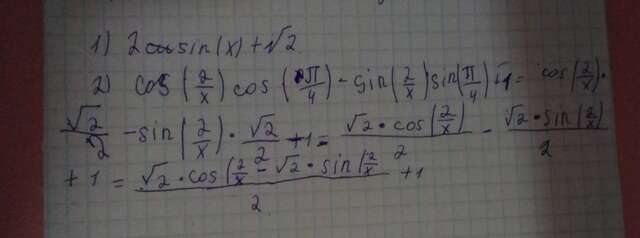 1) 2 sin(x) + √2
2) cos (2/x) cos (π/4) - sin(2/x) sin(π/4) + 1 = cos(2/x) ·
√2/2 - sin(2/x) · √2/2 + 1 = √2 · cos(2/x)/2 - √2 · sin(2/x)/2
+ 1 = √2 · cos(2/x - √2 · sin(2/x / 2 + 1